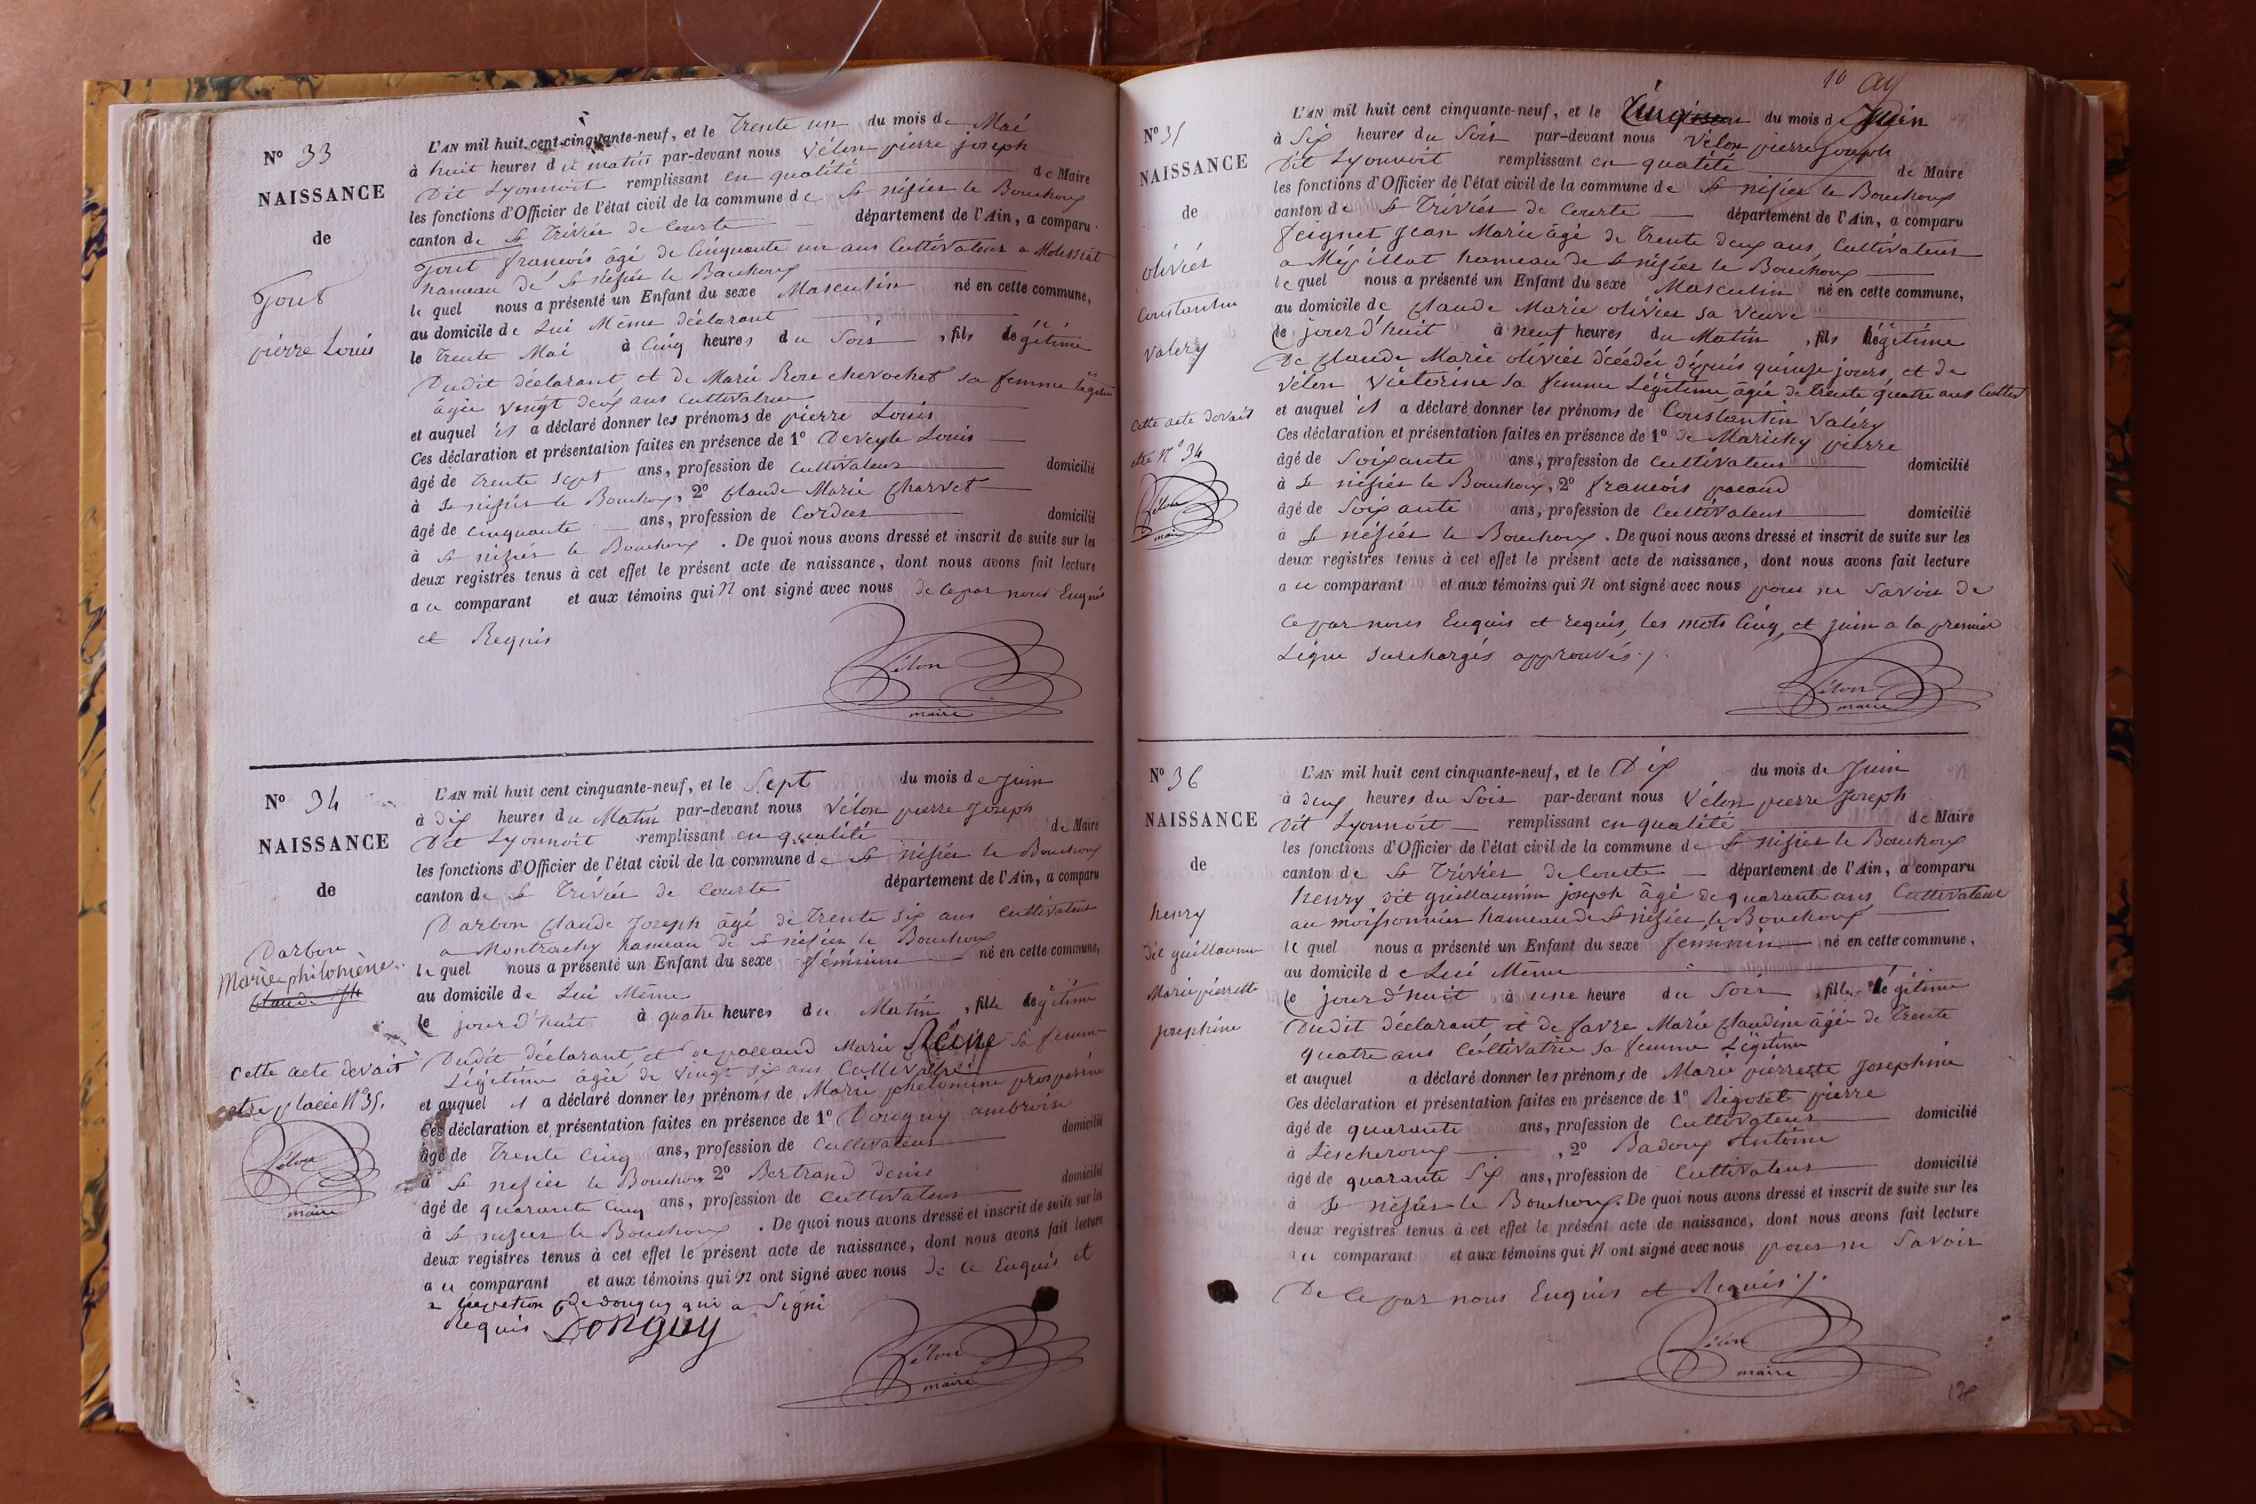 N° 33
NAISSANCE
de
Jout
pierre Louis
L'AN mil huit cent cinquante-neuf, et le Trente un du mois de Mai
à huit heures du matin par-devant nous Vélon pierre joseph
Dit Lyonnoit remplissant en qualité de Maire
les fonctions d'Officier de l'état civil de la commune de St nisier le Bouchoux
canton de St Trivier de Courte département de l'Ain, a comparu
françois âgé de Cinquante un ans Cultivateur a Molissiat
hameau de St nisier le Bouchoux
le quel nous a présenté un Enfant du sexe Masculin né en cette commune,
au domicile de Lui Même déclarant
le Trente Mai à Cinq heures du Soir , fils légitime
Dudit déclarant et de Marie Rose chevochet sa femme légitime
âgée vingt deux ans Cultivatrice
et auquel il a déclaré donner les prénoms de pierre Louis
Ces déclaration et présentation faites en présence de 1° Deveyle Louis
âgé de Trente sept ans, profession de Cultivateur domicilié
à St nisier le Bouchoux, 2° Claude Marie Charvet
âgé de Cinquante ans, profession de Cordier domicilié
à St nisier le Bouchoux . De quoi nous avons dressé et inscrit de suite sur les
deux registres tenus à cet effet le présent acte de naissance, dont nous avons fait lecture
au comparant et aux témoins qui N ont signé avec nous de ce par nous Enquis
et Requis
Vélon
maire
N° 34
NAISSANCE
de
Darbon
Marie philomène
Claude Jh
Cette acte devait
être placée N° 35.
Vélon
maire
L'AN mil huit cent cinquante-neuf, et le Sept du mois de Juin
à dix heures du Matin par-devant nous Vélon pierre Joseph
Dit Lyonnoit remplissant en qualité de Maire
les fonctions d'Officier de l'état civil de la commune de St nisier le Bouchoux
canton de St Trivier de Courte département de l'Ain, a comparu
Darbon Claude Joseph âgé de Trente Six ans Cultivateur
a Montrachy hameau de St nisier le Bouchoux
le quel nous a présenté un Enfant du sexe féminin né en cette commune,
au domicile de Lui Même
le jour d'huit à quatre heures du Matin , fille légitime
Dudit déclarant et de pacaud Marie Reine sa femme
Légitime âgée de vingt Six ans Cultivatrice
et auquel il a déclaré donner les prénoms de Marie phelomine prosperine
Ces déclaration et présentation faites en présence de 1° Donguy ambroise
âgé de Trente Cinq ans, profession de Cultivateur domicilié
à St nisier le Bouchoux 2° Bertrand denis
âgé de quarante Cinq ans, profession de Cultivateur domicilié
à St nisier le Bouchoux . De quoi nous avons dressé et inscrit de suite sur les
deux registres tenus à cet effet le présent acte de naissance, dont nous avons fait lecture
au comparant et aux témoins qui N ont signé avec nous de ce Enquis et
a exception de donguy qui a Signé
Requis Donguy
Vélon
maire
N° 35
NAISSANCE
de
olivier
Constantin
Valéry
Cette acte devait
être N° 34
Vélon
maire
L'AN mil huit cent cinquante-neuf, et le Cinq du mois de Juin
à Six heures du Soir par-devant nous Vélon pierre Joseph
Dit Lyonnoit remplissant en qualité de Maire
les fonctions d'Officier de l'état civil de la commune de St nisier le Bouchoux
canton de St Trivier de Courte département de l'Ain, a comparu
feignet Jean Marie âgé de Trente deux ans, Cultivateur
a Mézillat hameau de St nisier le Bouchoux
le quel nous a présenté un Enfant du sexe Masculin né en cette commune,
au domicile de Claude Marie olivier sa veuve
le jour d'huit à neuf heures du Matin , fils légitime
De Claude Marie olivier décédé depuis quinze jours, et de
Vélon Victorine sa femme Légitime âgée de trente quatre ans
et auquel il a déclaré donner les prénoms de Constantin Valéry
Ces déclaration et présentation faites en présence de 1° de Marichy pierre
âgé de Soixante ans, profession de Cultivateur domicilié
à St nisier le Bouchoux, 2° francois pacaud
âgé de Soixante ans, profession de Cultivateur domicilié
à St nisier le Bouchoux . De quoi nous avons dressé et inscrit de suite sur les
deux registres tenus à cet effet le présent acte de naissance, dont nous avons fait lecture
au comparant et aux témoins qui N ont signé avec nous pour ne Savoir de
ce par nous Enquis et requis, les mots Cinq et juin a la premier
Ligne Surchargés approuvés ./.
Vélon
maire
N° 36
NAISSANCE
de
henry
Dit guillaumin
Marie pierrette
Josephine
L'AN mil huit cent cinquante-neuf, et le Dix du mois de Juin
à deux heures du Soir par-devant nous Vélon pierre Joseph
Dit Lyonnoit remplissant en qualité de Maire
les fonctions d'Officier de l'état civil de la commune de St nisier le Bouchoux
canton de St Trivier de Courte département de l'Ain, a comparu
henry dit guillaumin joseph âgé de quarante ans Cultivateur
au moissonnier hameau de St nisier le Bouchoux
le quel nous a présenté un Enfant du sexe féminin né en cette commune,
au domicile de Lui Même
le jour d'huit à une heure du Soir , fille légitime
Dudit déclarant, et de favre Marie Claudine âgée de Trente
quatre ans Cultivatrice sa femme Légitime
et auquel a déclaré donner les prénoms de Marie pierrette Josephine
Ces déclaration et présentation faites en présence de 1° Rigolet pierre
âgé de quarante ans, profession de Cultivateur domicilié
à Lescheroux , 2° Badoux Antoine
âgé de quarante Six ans, profession de Cultivateur domicilié
à St nisier le Bouchoux. De quoi nous avons dressé et inscrit de suite sur les
deux registres tenus à cet effet le présent acte de naissance, dont nous avons fait lecture
au comparant et aux témoins qui N ont signé avec nous pour ne Savoir
De ce par nous Enquis et Requis ./.
Vélon
maire